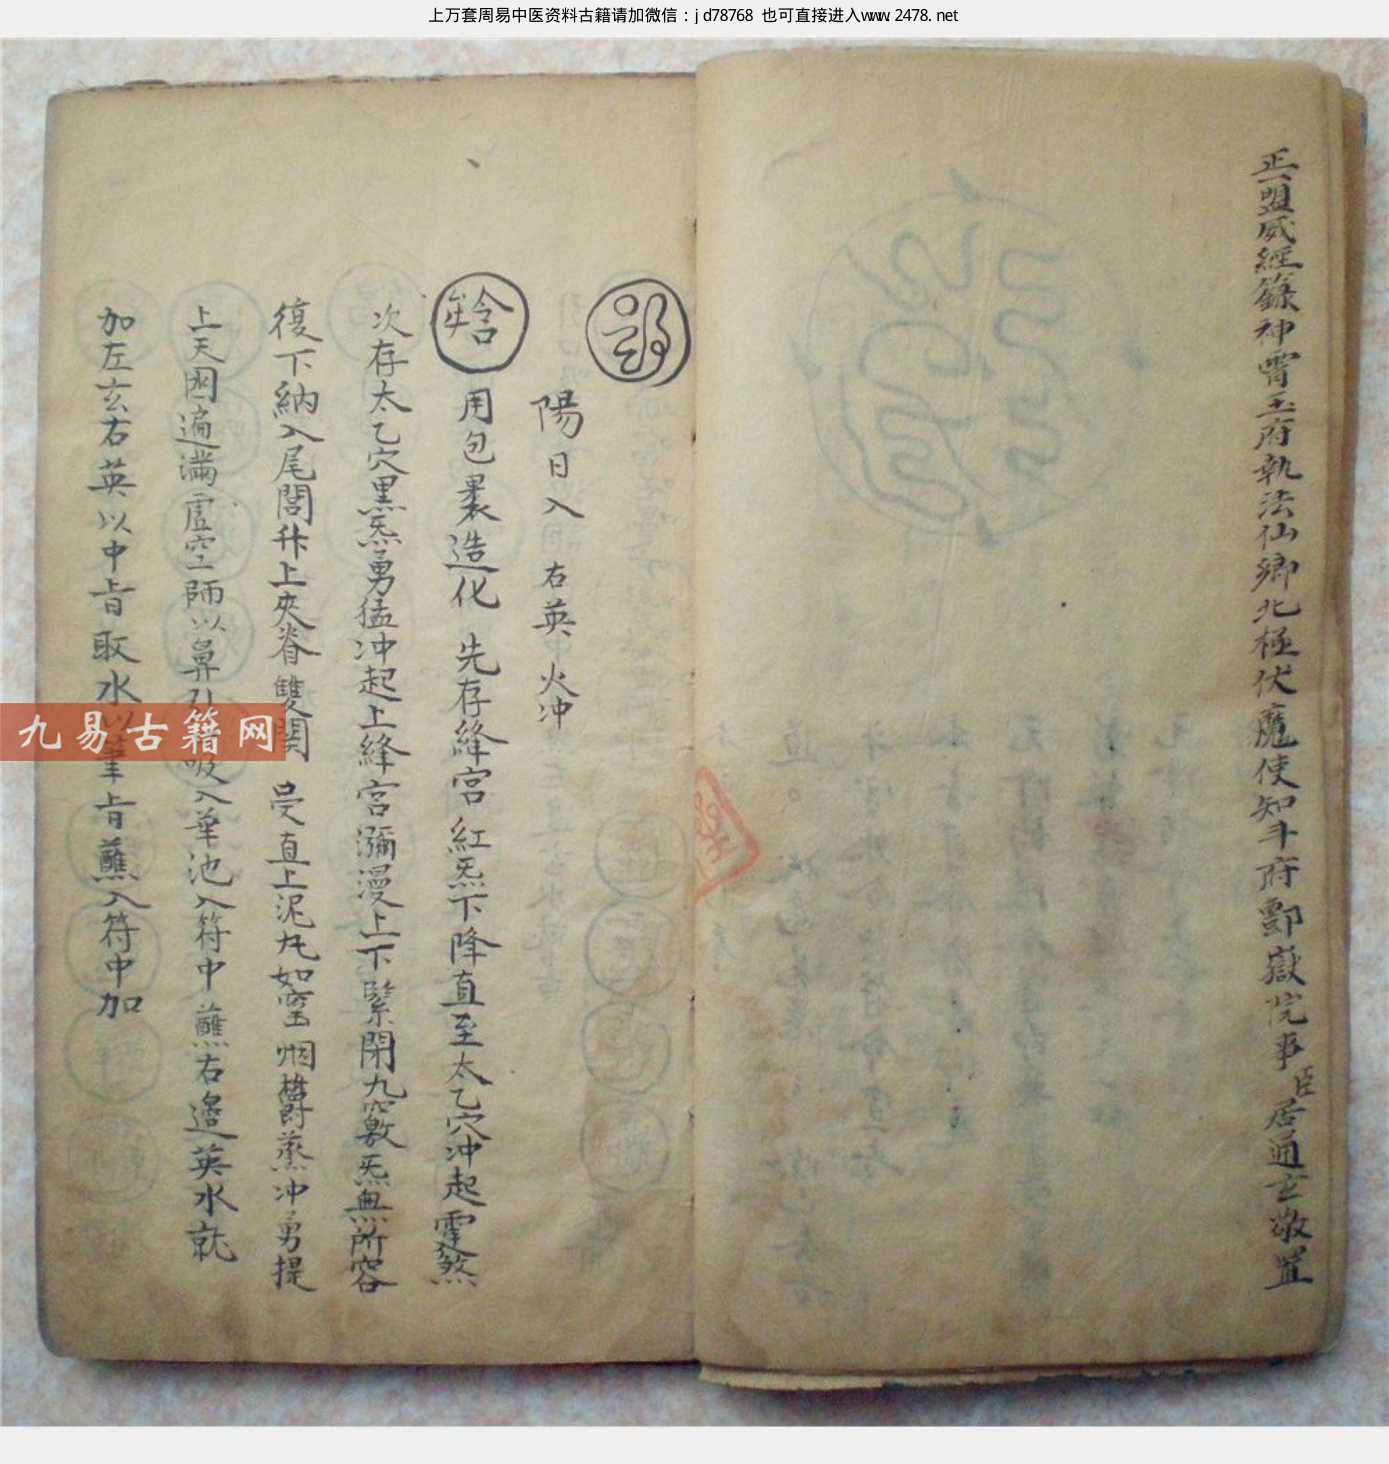 上万套周易中医资料古籍请加微信：jd78768 也可直接进入www.2478.net
正一盟威經籙神霄玉府執法仙卿北極伏魔使知斗府酆嶽院事臣居通玄敬置
陽日入 右英 火冲
用包裹造化 先存絳宮紅炁下降直至太乙穴冲起霊煞
次存太乙穴黑炁勇猛冲起上絳宮瀰漫上下緊閉九竅炁無所容
復下納入尾閭升上夾脊雙関 直上泥丸如窑烟欝蒸冲勇提
上天圂遍滿虚空師以鼻引吸入華池入符中蘸右邊英水就
加左玄右英以中旨取水以筆旨蘸入符中加
九易古籍网